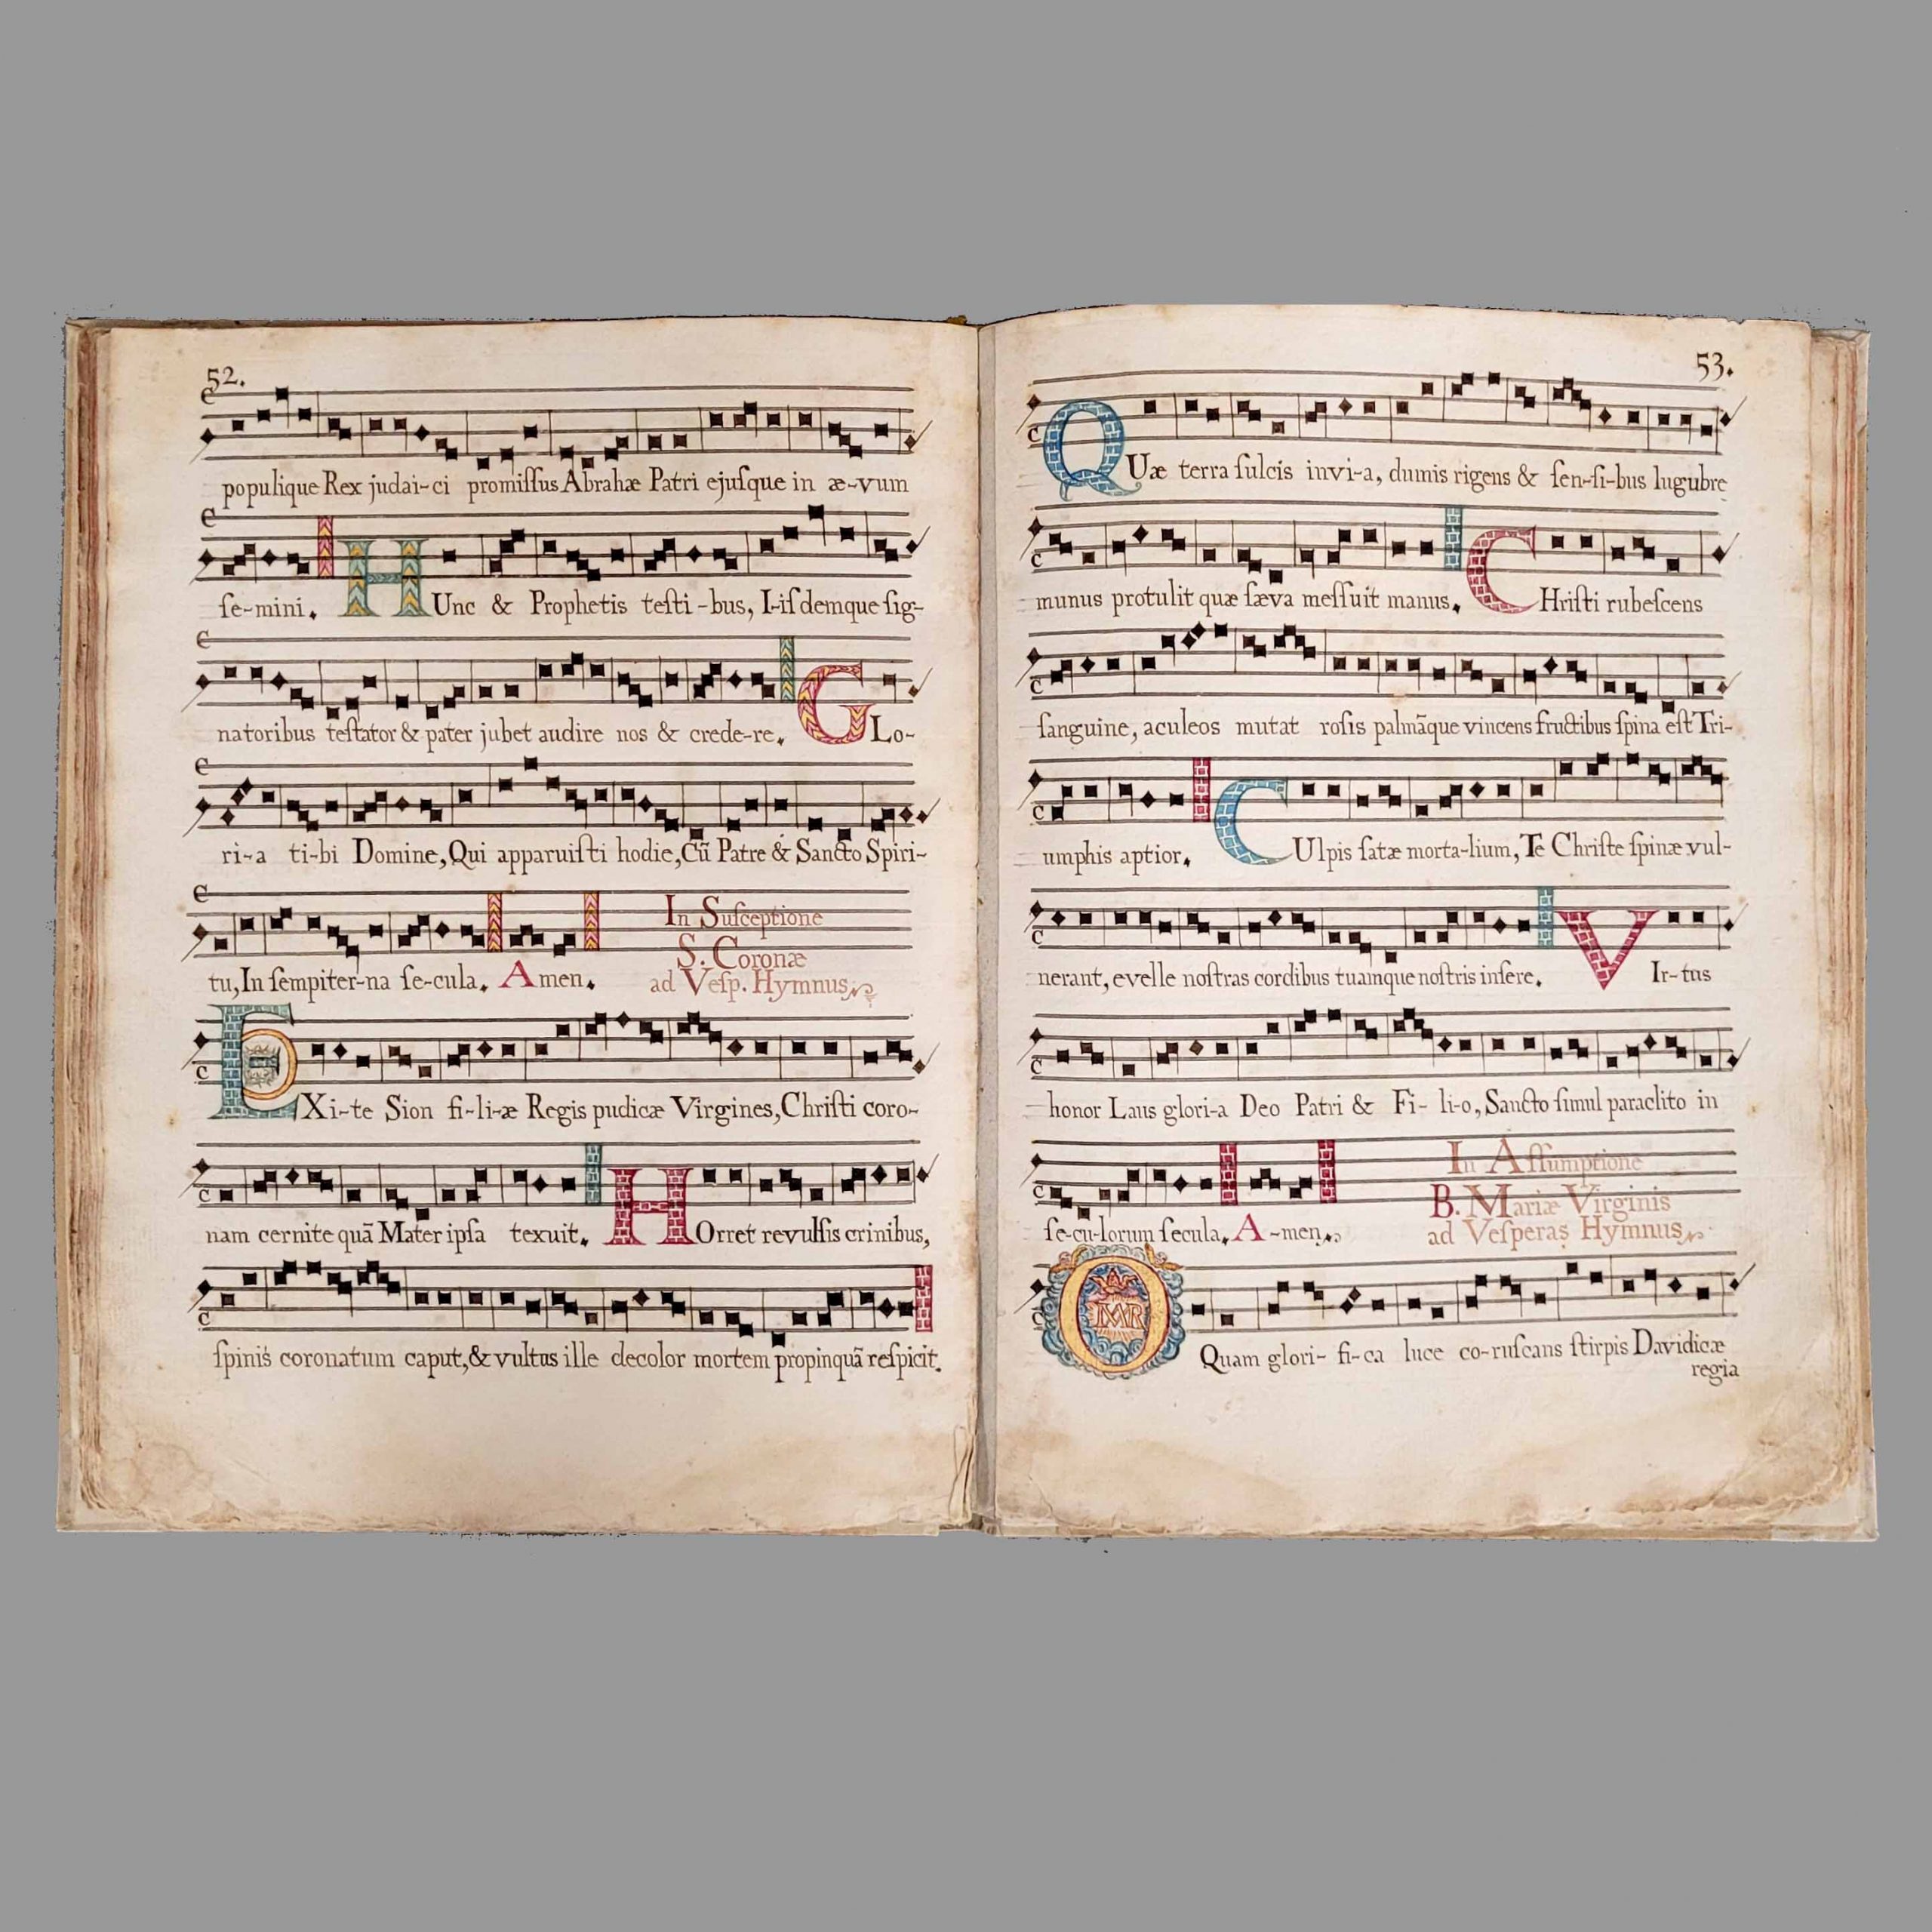 52.
populique Rex judai-ci promiſſus Abrahæ Patri ejuſque in æ-vum
ſe-mini. HUnc & Prophetis teſti-bus, I-iſdemque ſig-
natoribus teſtator & pater jubet audire nos & crede-re. GLo-
ri-a ti-bi Domine, Qui apparuiſti hodie, Cũ Patre & Sancto Spiri-
tu, In ſempiter-na ſe-cula. Amen. In Suſceptione
S. Coronæ
ad Veſp. Hymnus
EXi-te Sion fi-li-æ Regis pudicæ Virgines, Chriſti coro-
nam cernite quã Mater ipſa texuit. HOrret revulſis crinibus,
ſpinis coronatum caput, & vultus ille decolor mortem propinquã reſpicit.
53.
QUæ terra ſulcis invi-a, dumis rigens & ſen-ſi-bus lugubre
munus protulit quæ ſæva meſſuit manus. CHriſti rubeſcens
ſanguine, aculeos mutat roſis palmãque vincens fructibus ſpina eſt Tri-
umphis aptior. CUlpis ſatæ morta-lium, Te Chriſte ſpinæ vul-
nerant, evelle noſtras cordibus tuamque noſtris inſere. VIr-tus
honor Laus glori-a Deo Patri & Fi-li-o, Sancto ſimul paraclito in
ſe-cu-lorum ſecula. A-men. In Aſſumptione
B. Mariæ Virginis
ad Veſperas Hymnus
O Quam glori-fi-ca luce co-ruſcans ſtirpis Davidicæ
regia